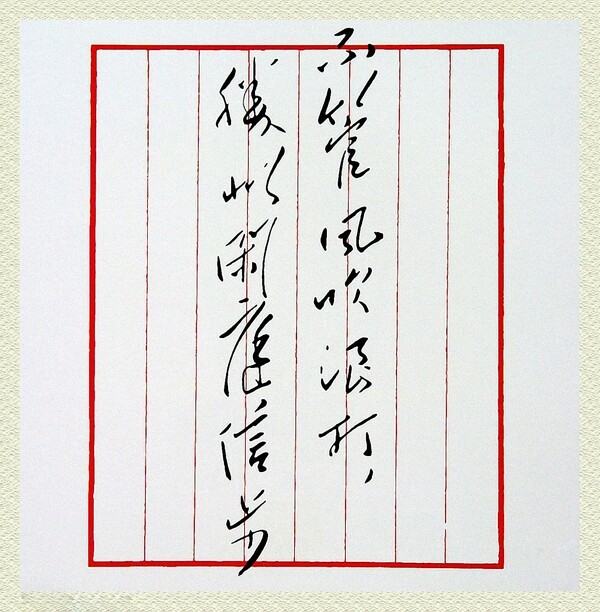 不管风吹浪打，
胜似闲庭信步